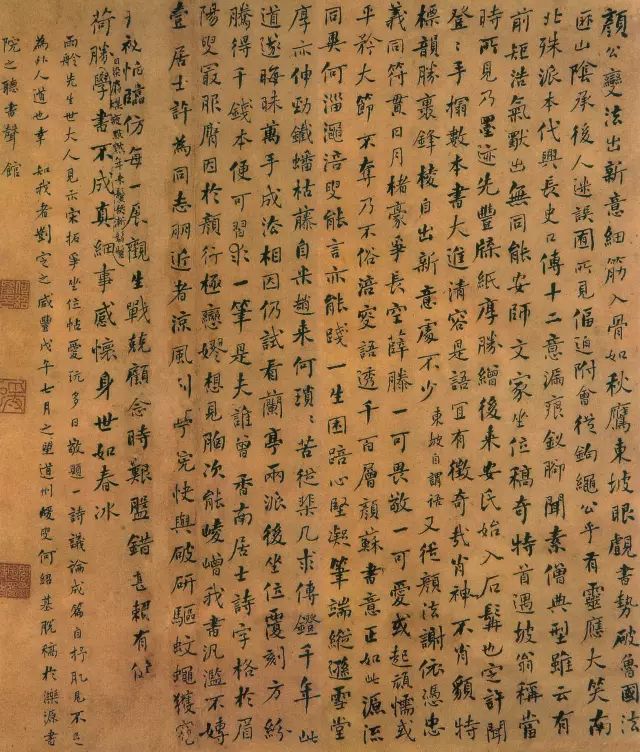 顏公變法出新意細筋入骨如秋鷹東坡眼覷書勢破魯國法
匪山陰承後人迷誤圖所見偪迫附會從鉤繩公乎有靈應大笑南
北殊派本代興長史口傳十二意漏痕釵腳聞素僧典型雖云有
前矩浩氣獸出無同能安師文家坐位稿奇特首遇坡翁稱當
時所見乃墨迹先豐牘紙厚勝繒後來安氏始入石髯也定許聞
登登手搨數本書大進清容是語宜有徵奇哉肖神不肖貌特
標韻勝裹鋒棱自出新意處不少東坡自謂語又從顏法謝依憑忠
義同符貫日月楮豪爭長空薛滕一可畏敬一可愛或起頑懦或
平矜大節不奪乃不俗涪叟語透千百層顏蘇書意正如此源流
同異何淄澠涪叟能言亦能踐一生困踣心堅凝筆端縱遜雪堂
厚亦伸勁鐵蟠枯藤自米趙來何瑣瑣苦從棐几求傳鐙千年此
道遂晦昧萬手成沿相因仍試看蘭亭兩派後坐位覆刻方紛
騰得千錢本便可習求一筆是夫誰曾香南居士詩字格於眉
陽叟最服膺因於顏行極戀嫪想見胸次能崚嶒我書汎濫不專
壹居士許為同志朋近者涼風到學究快與破研驅蚊蠅獲窺
忙臨仿每一展觀生戰兢顧念時艱盤錯甚賴有
荷勝學書不成真細事感懷身世如春冰
雨舲先生世大人見示宋拓爭坐位帖愛玩多日敬題一詩議論成篇自抒肊見不足
為外人道也幸如我者劉寬之咸豐戊午年七月之望道州蝯叟何紹基脫稿於濼源書
院之聽書聲館